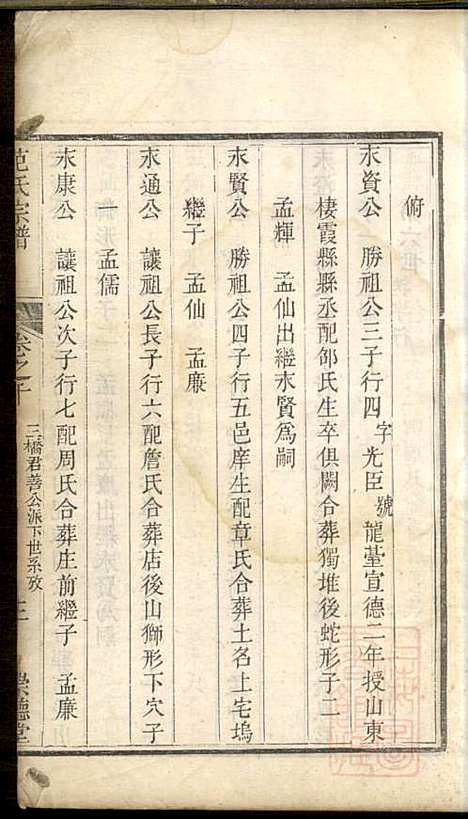 俯
永資公　勝祖公三子行四字光臣號龍臺宣德二年授山東
棲霞縣縣丞配邹氏生卒俱闕合葬獨堆後蛇形子二
孟輝　孟仙出繼永賢爲嗣
永賢公　勝祖公四子行五邑庠生配章氏合葬土名上宅塢
繼子　孟仙　孟廉
永通公　讓祖公長子行六配詹氏合葬店後山獅形下穴子
一　孟儒
永康公　讓祖公次子行七配周氏合葬庄前繼子　孟廉
范氏宗譜　卷之十　三橋君善公派下世系攷　三　崇德堂